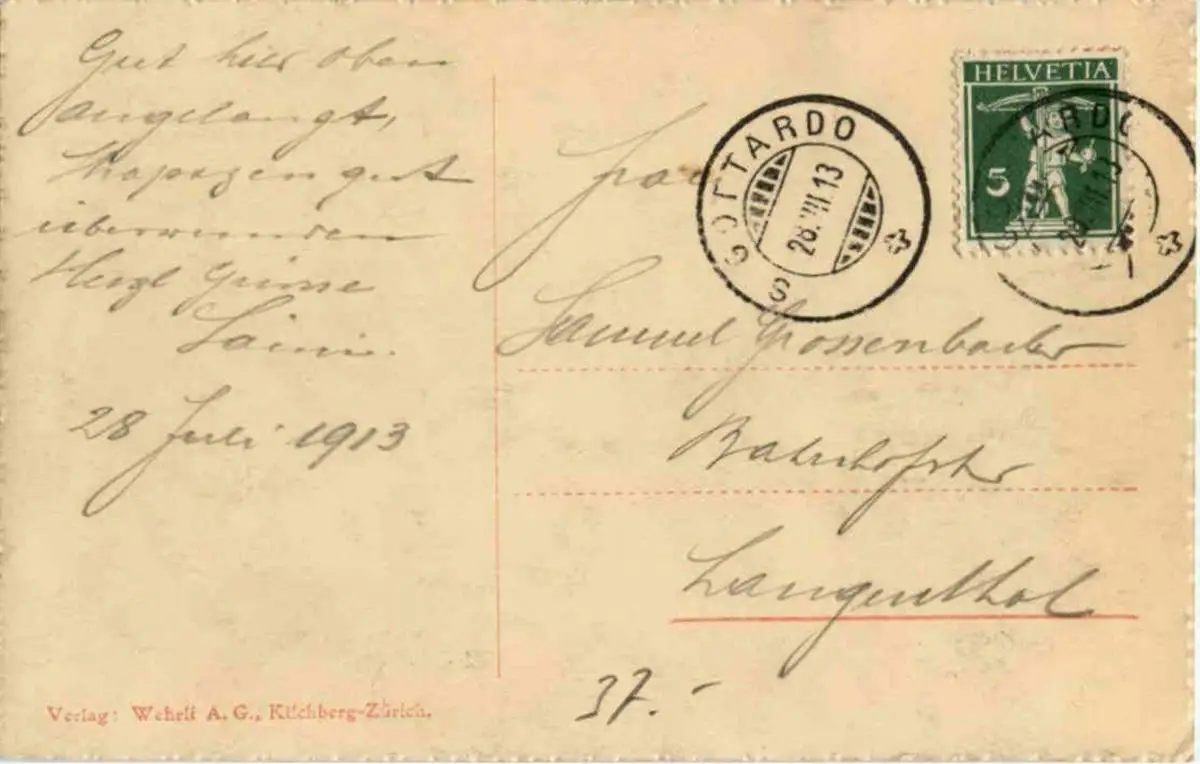 Gut hier oben
angelangt,
Strapazen gut
überwunden
Herzl Grüsse
28 Juli 1913
Verlag: Wehrli A. G., Kilchberg-Zürich.
HELVETIA
5
S. GOTTARDO
28.VII.13
Samuel Grossenbacher
Bahnhofstr
Langenthal
37.-